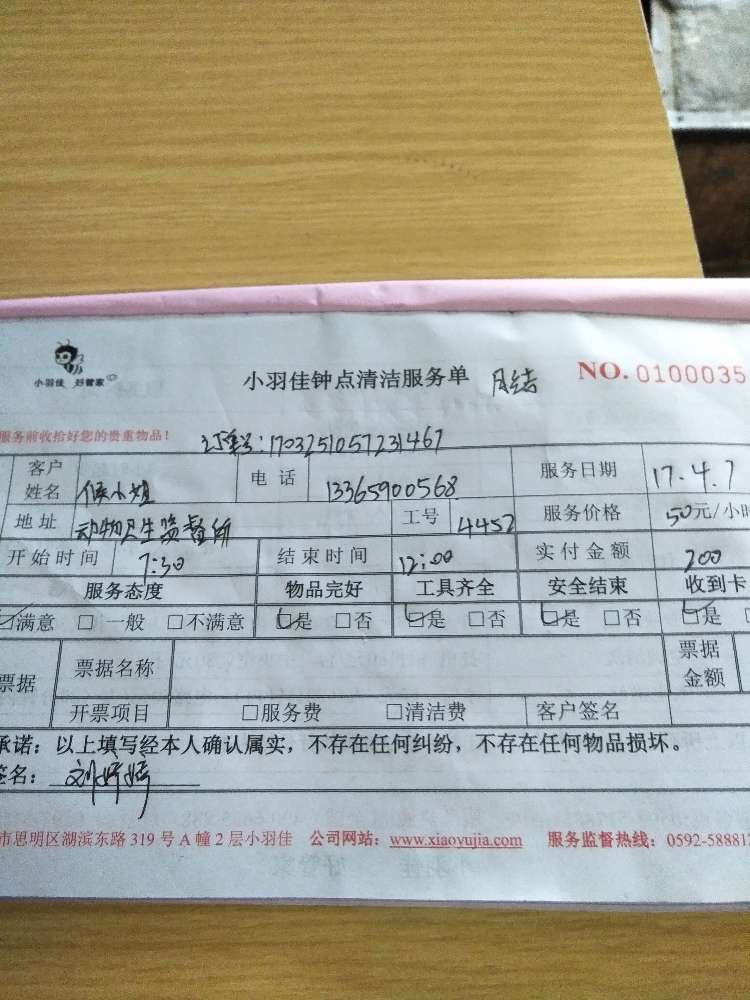 小羽佳 好管家
小羽佳钟点清洁服务单 月结 NO. 0100035
服务前收拾好您的贵重物品!
订单号:1703251057231467
客户姓名 候小姐 电话 13365900568 服务日期 17.4.7
地址 动物卫生监督所 工号 4452 服务价格 50元/小时
开始时间 7:30 结束时间 12:00 实付金额 200
服务态度 物品完好 工具齐全 安全结束 收到卡
☑满意 □一般 □不满意 ☑是 □否 ☑是 □否 ☑是 □否 ☑是
票据 票据名称 票据金额
开票项目 □服务费 □清洁费 客户签名
承诺:以上填写经本人确认属实,不存在任何纠纷,不存在任何物品损坏。
签名:刘婷婷
市思明区湖滨东路319号A幢2层小羽佳 公司网站:www.xiaoyujia.com 服务监督热线:0592-58881